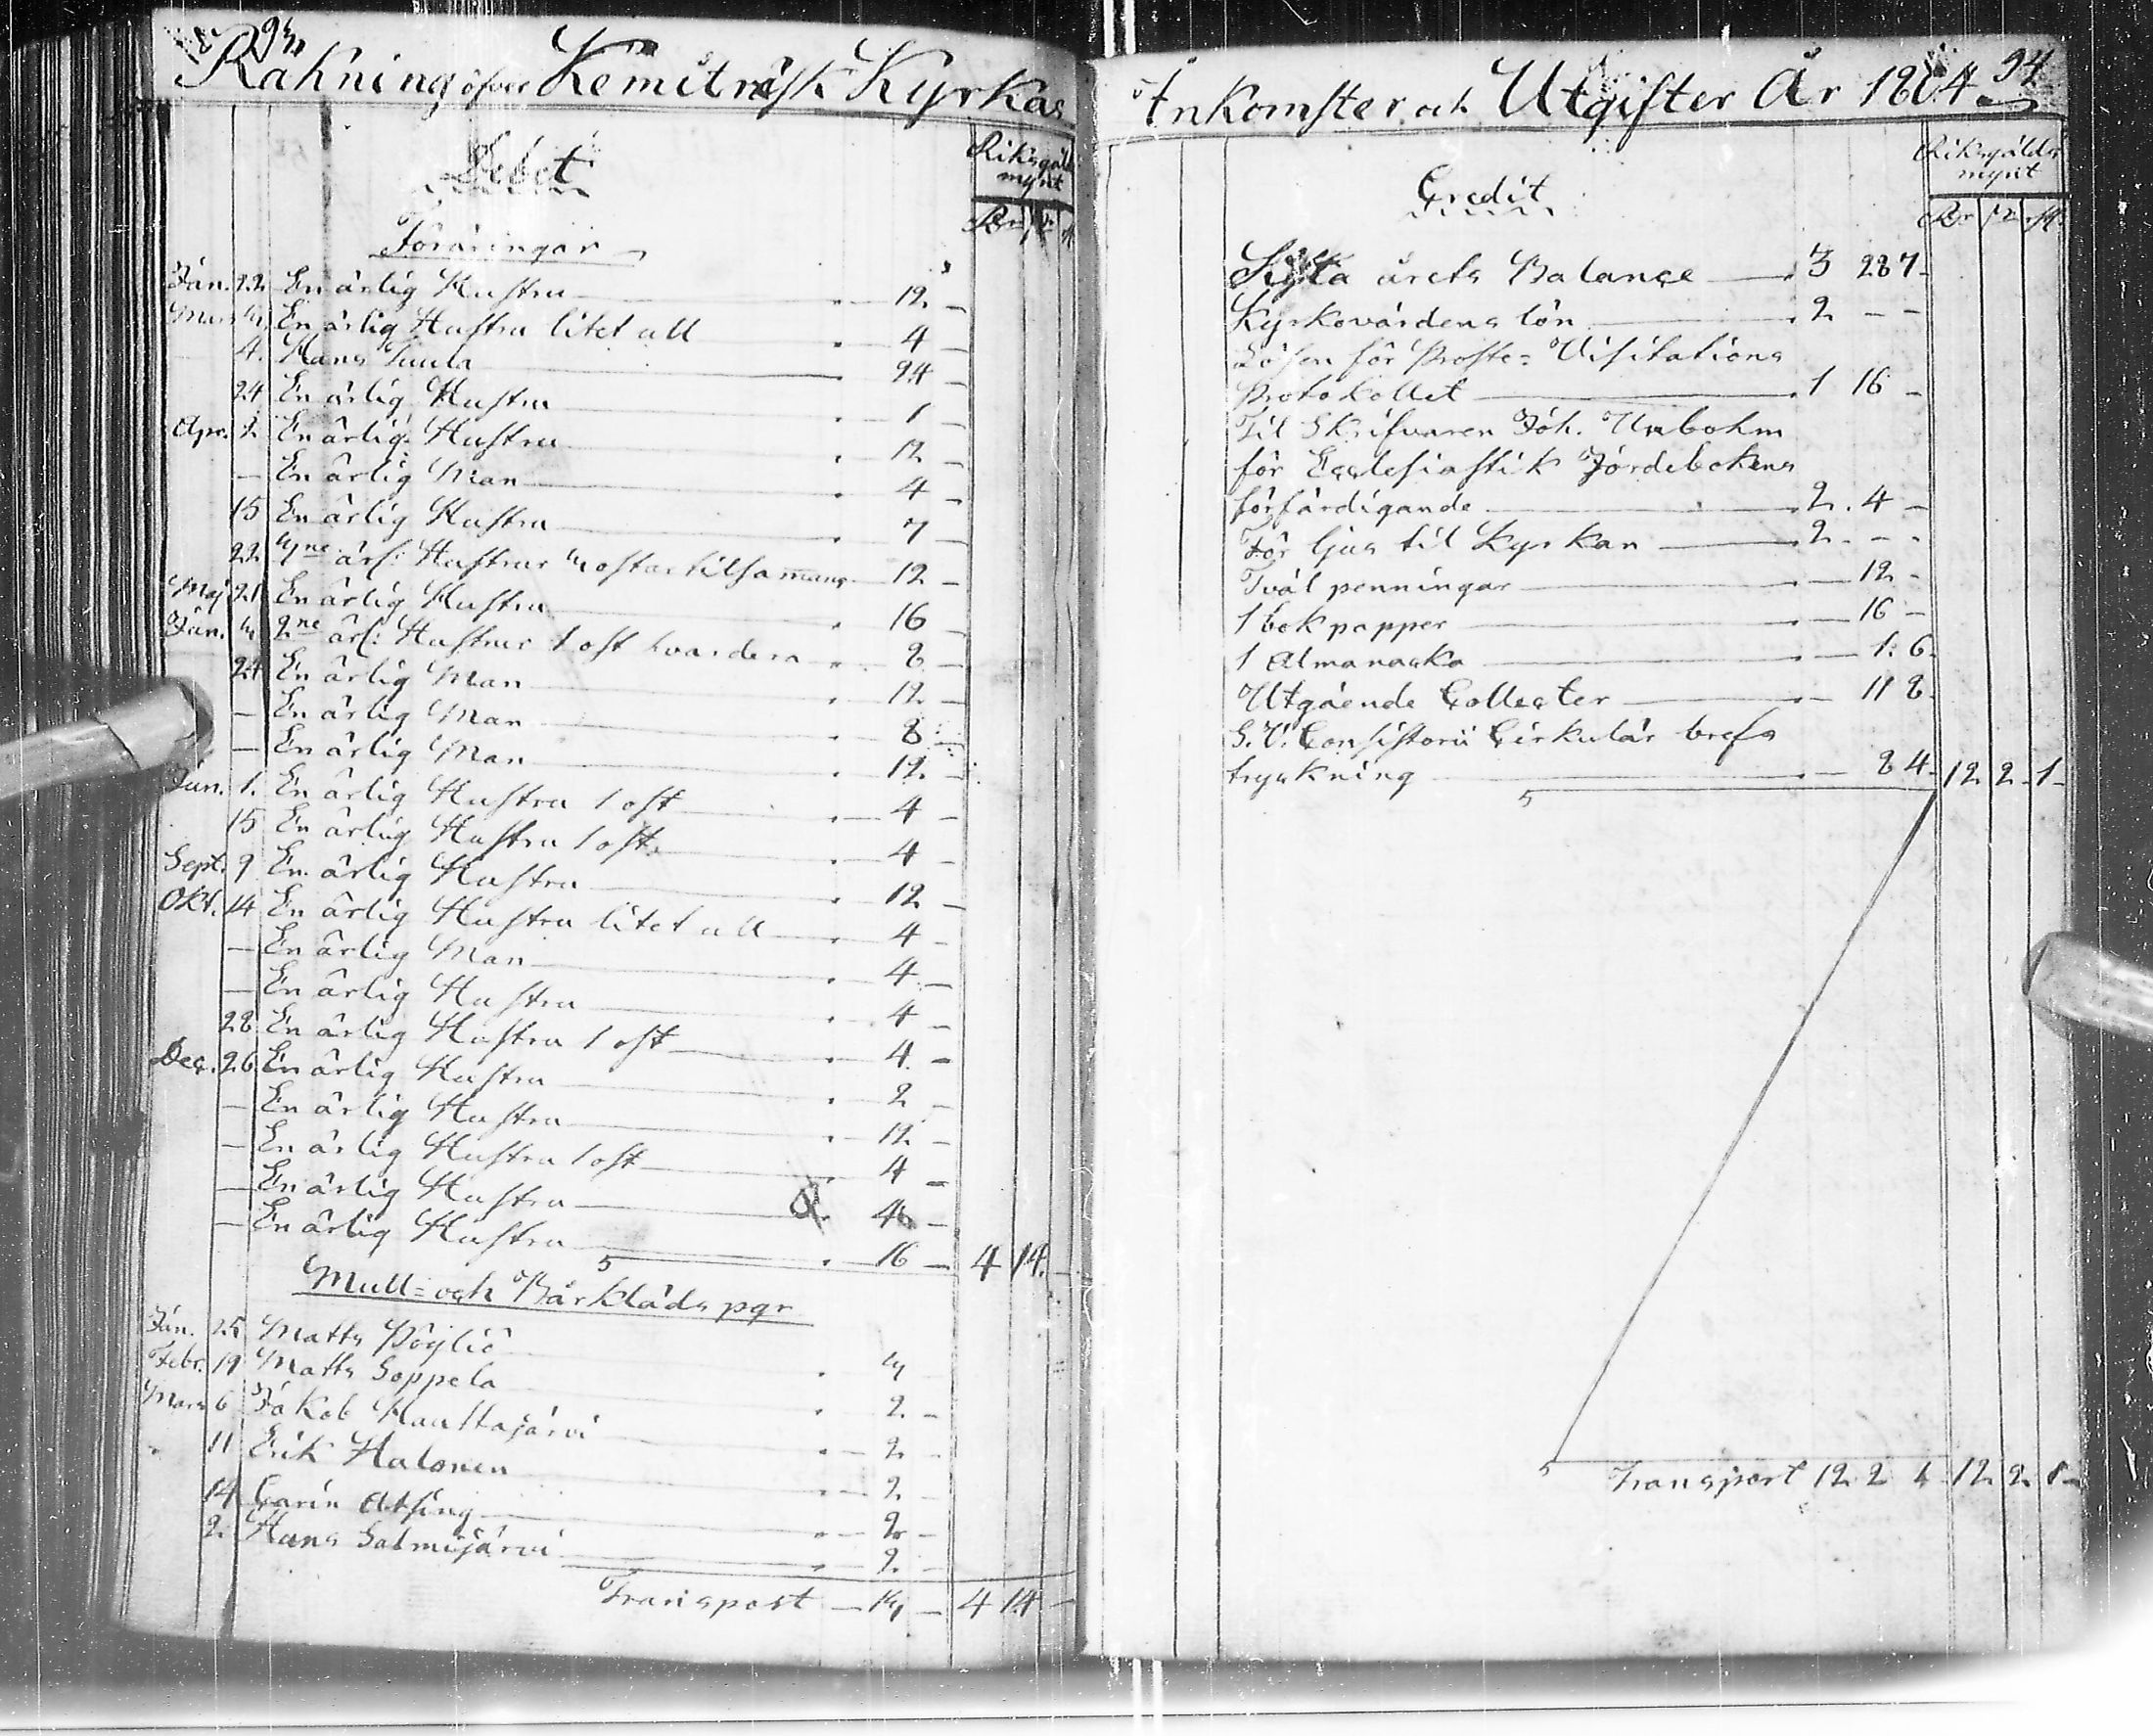 94
Räkning öfver Kemiträsk Kyrkas
Debet
Riksgälds
mynt
Rr ß r
Föräringar
Jan. 22 En ärlig Hustru 12 -
Mars 4 En ärlig Hustru litet ull 4 -
4. Hans Tuula 24 -
24 En ärlig Hustru 1 -
Apr. 2. En ärlig Hustru 12 -
- En ärlig Man 4 -
15 En ärlig Hustru 7 -
22 4ne ärl: Hustrur 4 ostar tilsamans 12 -
Maj 21 En ärlig Hustru 16 -
Jun. 4 2ne ärl: Hustrur 1 ost hvardera 8 -
24 En ärlig Man 12 -
- En ärlig Man 8 -
- En ärlig Man 12 -
Jun. 1. En ärlig Hustru 1 ost 4 -
15 En ärlig Hustru 1 ost 4 -
Sept. 9 En ärlig Hustru 12 -
Okt. 14 En ärlig Hustru litet ull 4 -
- En ärlig Man 4 -
- En ärlig Hustru 4 -
28 En ärlig Hustru 1 ost 4 -
Dec. 26 En ärlig Hustru 2 -
- En ärlig Hustru 12 -
- En ärlig Hustru 1 ost 4 -
- En ärlig Hustru -
- En ärlig Hustru 16 - 4 14 -
Mull- och Bårkläds pgr
Jan. 25 Matts Pöyliö 4
Febr. 19 Matts Soppela 2 -
Mars 6 Jakob Hauttajärvi 2 -
11 Erik Halonen 2 -
14 Carin 2 -
2. Hans Salmijärvi 2 -
Transport - 14 - 4 14 -
94
Inkomster och Utgifter År 1804
Riksgälds
mynt
Credit
Rr ß r
Sista årets Balance 3 28 7
Kyrkovärdens lön 2 - -
Lösen för Proste- Visitations
Protokollet 1 16 -
Til Skrifvaren Joh. Unbohm
för Ecclesiastik Jordebokens
förfärdigande 2. 4 -
För ljus til Kyrkan 2 - -
Tvål penningar - 12 -
1 bok papper - 16 -
1 Almanacka - 1: 6.
Utgående Collecter - 11 8
S. V. Consistorii Cirkulär brefs
tryckning - 8 4 12 2 1
Transport 12 2 1 12 2 1